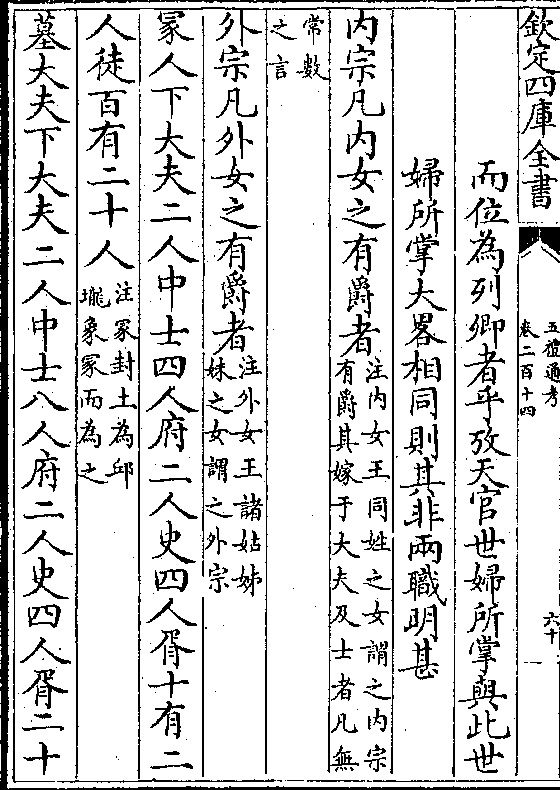 欽定四庫全書
五禮通考
卷二百十四
六十一
而位為列卿者乎攷天官世婦所掌與此世
婦所掌大畧相同則其非兩職明甚
内宗凡内女之有爵者
注内女王同姓之女謂之内宗
有爵其嫁于大夫及士者凡無
常數
之言
外宗凡外女之有爵者
注外女王諸姑姊
妹之女謂之外宗
冢人下大夫二人中士四人府二人史四人胥十有二
人徒百有二十人
注冢封土為邱
壠象冢而為之
墓大夫下大夫二人中士八人府二人史四人胥二十